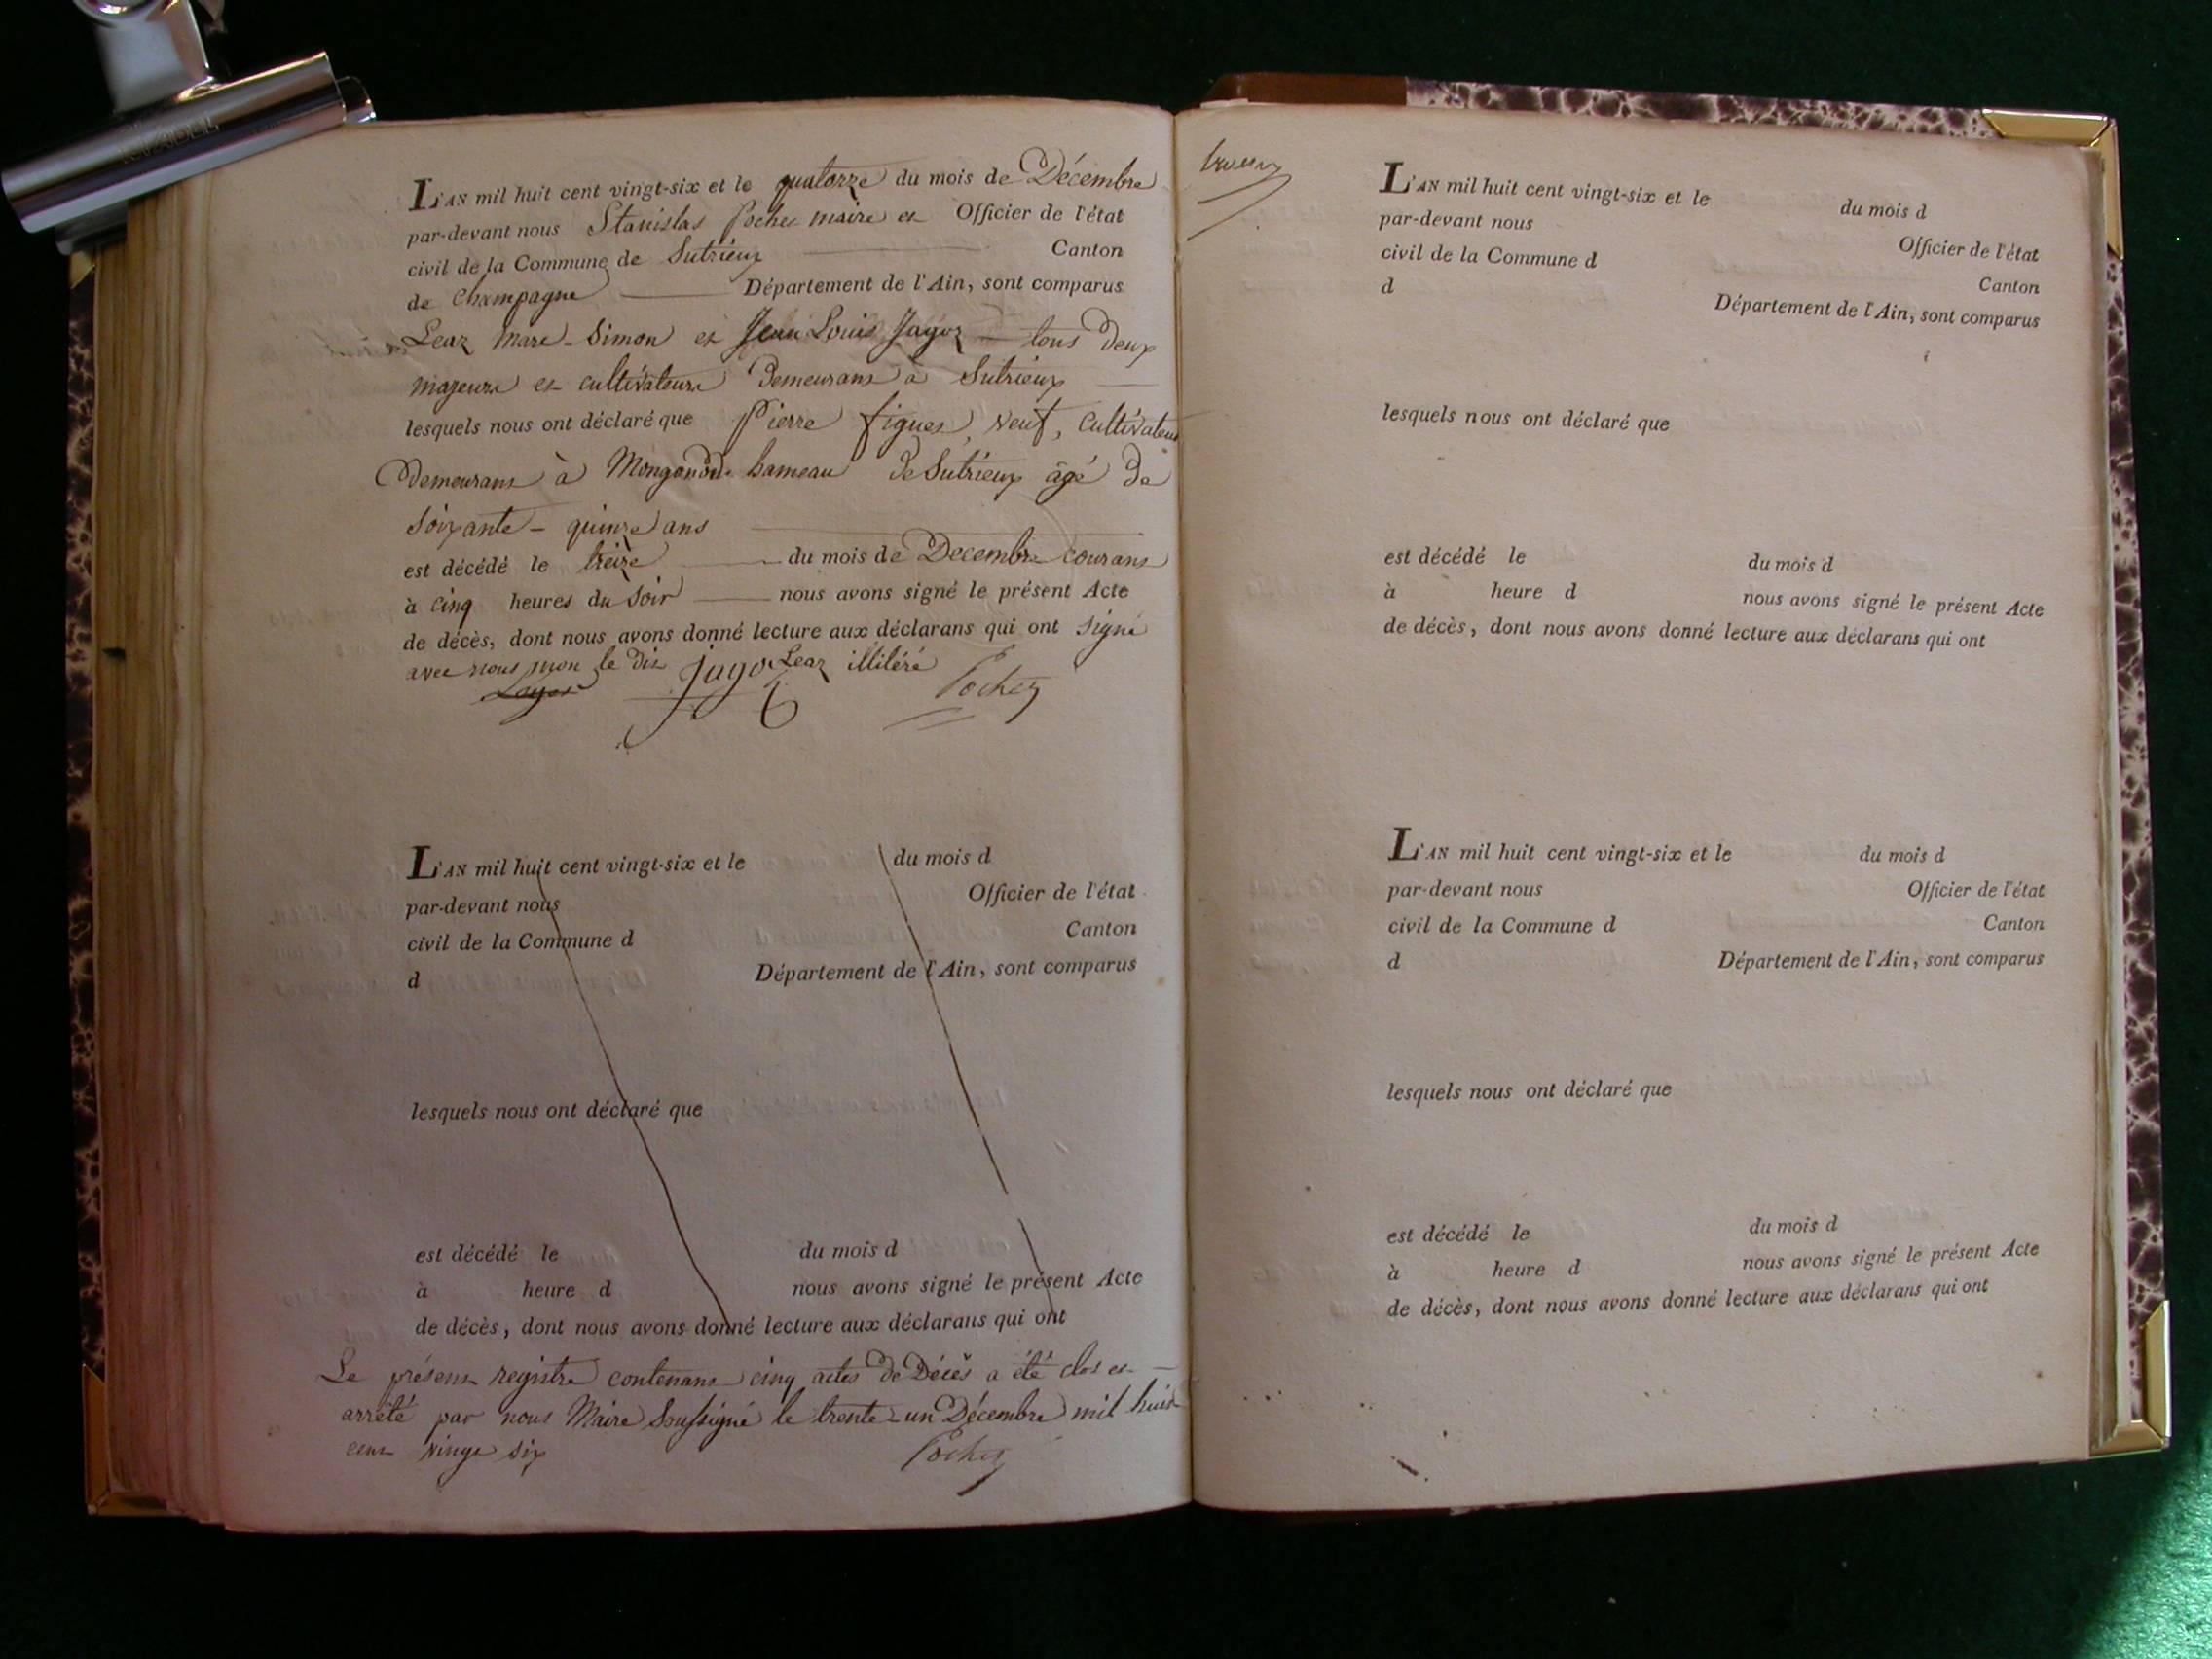 L'AN mil huit cent vingt-six et le quatorze du mois de Décembre
par-devant nous Stanislas Pochet maire et Officier de l'état
civil de la Commune de Sutrieux Canton
de Champagne Département de l'Ain, sont comparus
Leaz Marc-Simon et Jean Louis Jagoz tous deux
majeurs et cultivateurs demeurant à Sutrieux
lesquels nous ont déclaré que Pierre figuet, veuf, Cultivateur
demeurant à Mongonod hameau de Sutrieux âgé de
soixante-quinze ans
est décédé le treize du mois de Decembre courant
à cinq heures du soir nous avons signé le présent Acte
de décès, dont nous avons donné lecture aux déclarans qui ont signé
avec nous non le dit Leaz illitéré
jagoz Pochet
L'AN mil huit cent vingt-six et le du mois d
par-devant nous Officier de l'état
civil de la Commune d Canton
d Département de l'Ain, sont comparus
lesquels nous ont déclaré que
est décédé le du mois d
à heure d nous avons signé le présent Acte
de décès, dont nous avons donné lecture aux déclarans qui ont
Le présent registre contenant cinq actes de Décès a été clos et
arrêté par nous Maire Soussigné le trente-un Décembre mil huit
cent vingt six
Pochet
L'AN mil huit cent vingt-six et le du mois d
par-devant nous Officier de l'état
civil de la Commune d Canton
d Département de l'Ain, sont comparus
lesquels nous ont déclaré que
est décédé le du mois d
à heure d nous avons signé le présent Acte
de décès, dont nous avons donné lecture aux déclarans qui ont
L'AN mil huit cent vingt-six et le du mois d
par-devant nous Officier de l'état
civil de la Commune d Canton
d Département de l'Ain, sont comparus
lesquels nous ont déclaré que
est décédé le du mois d
à heure d nous avons signé le présent Acte
de décès, dont nous avons donné lecture aux déclarans qui ont